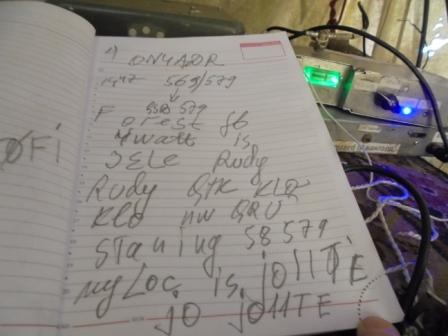 1) ON4ADR
569/579
↓
579
F orest fb
4watt is
JELe Rudy
Rudy QTH KLO
KLO nw QRU
Staning 58 579
my Loc is jo11TE
jo jo11TE
ØFi